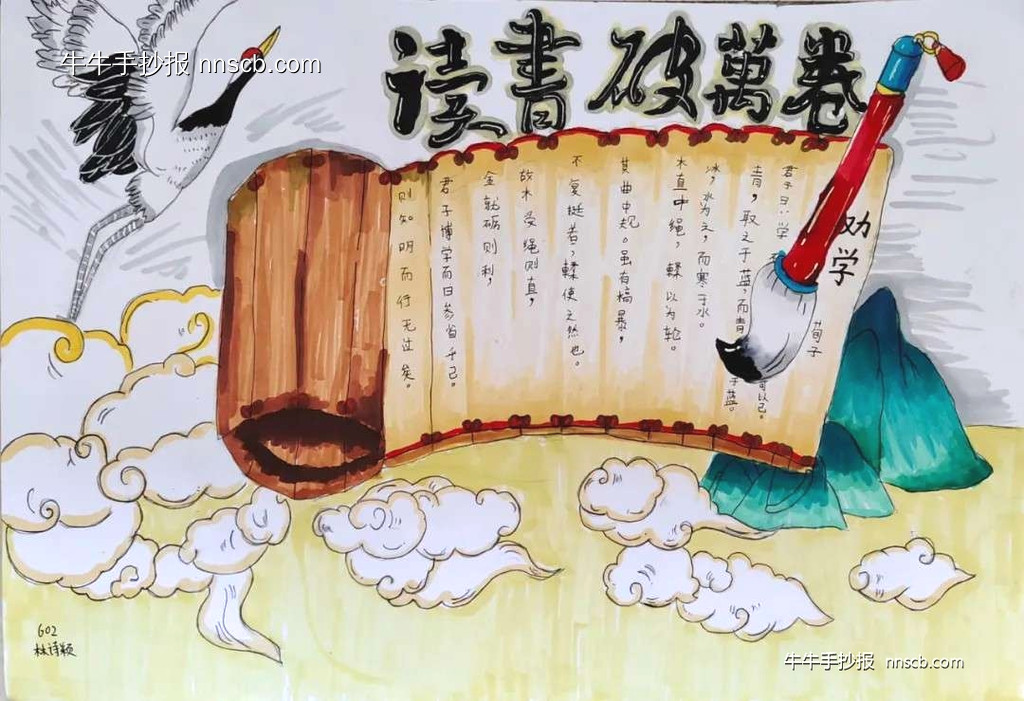 牛牛手抄报 nnscb.com
读书破萬卷
劝学
荀子
君子曰:学
可以已。
青,取之于蓝,而青
于蓝。
冰,水为之,而寒于水。
木直中绳,輮以为轮。
其曲中规。虽有槁暴,
不复挺者,輮使之然也。
故木受绳则直,
金就砺则利,
君子博学而日参省乎己。
则知明而行无过矣。
602
林诗颖
牛牛手抄报 nnscb.com